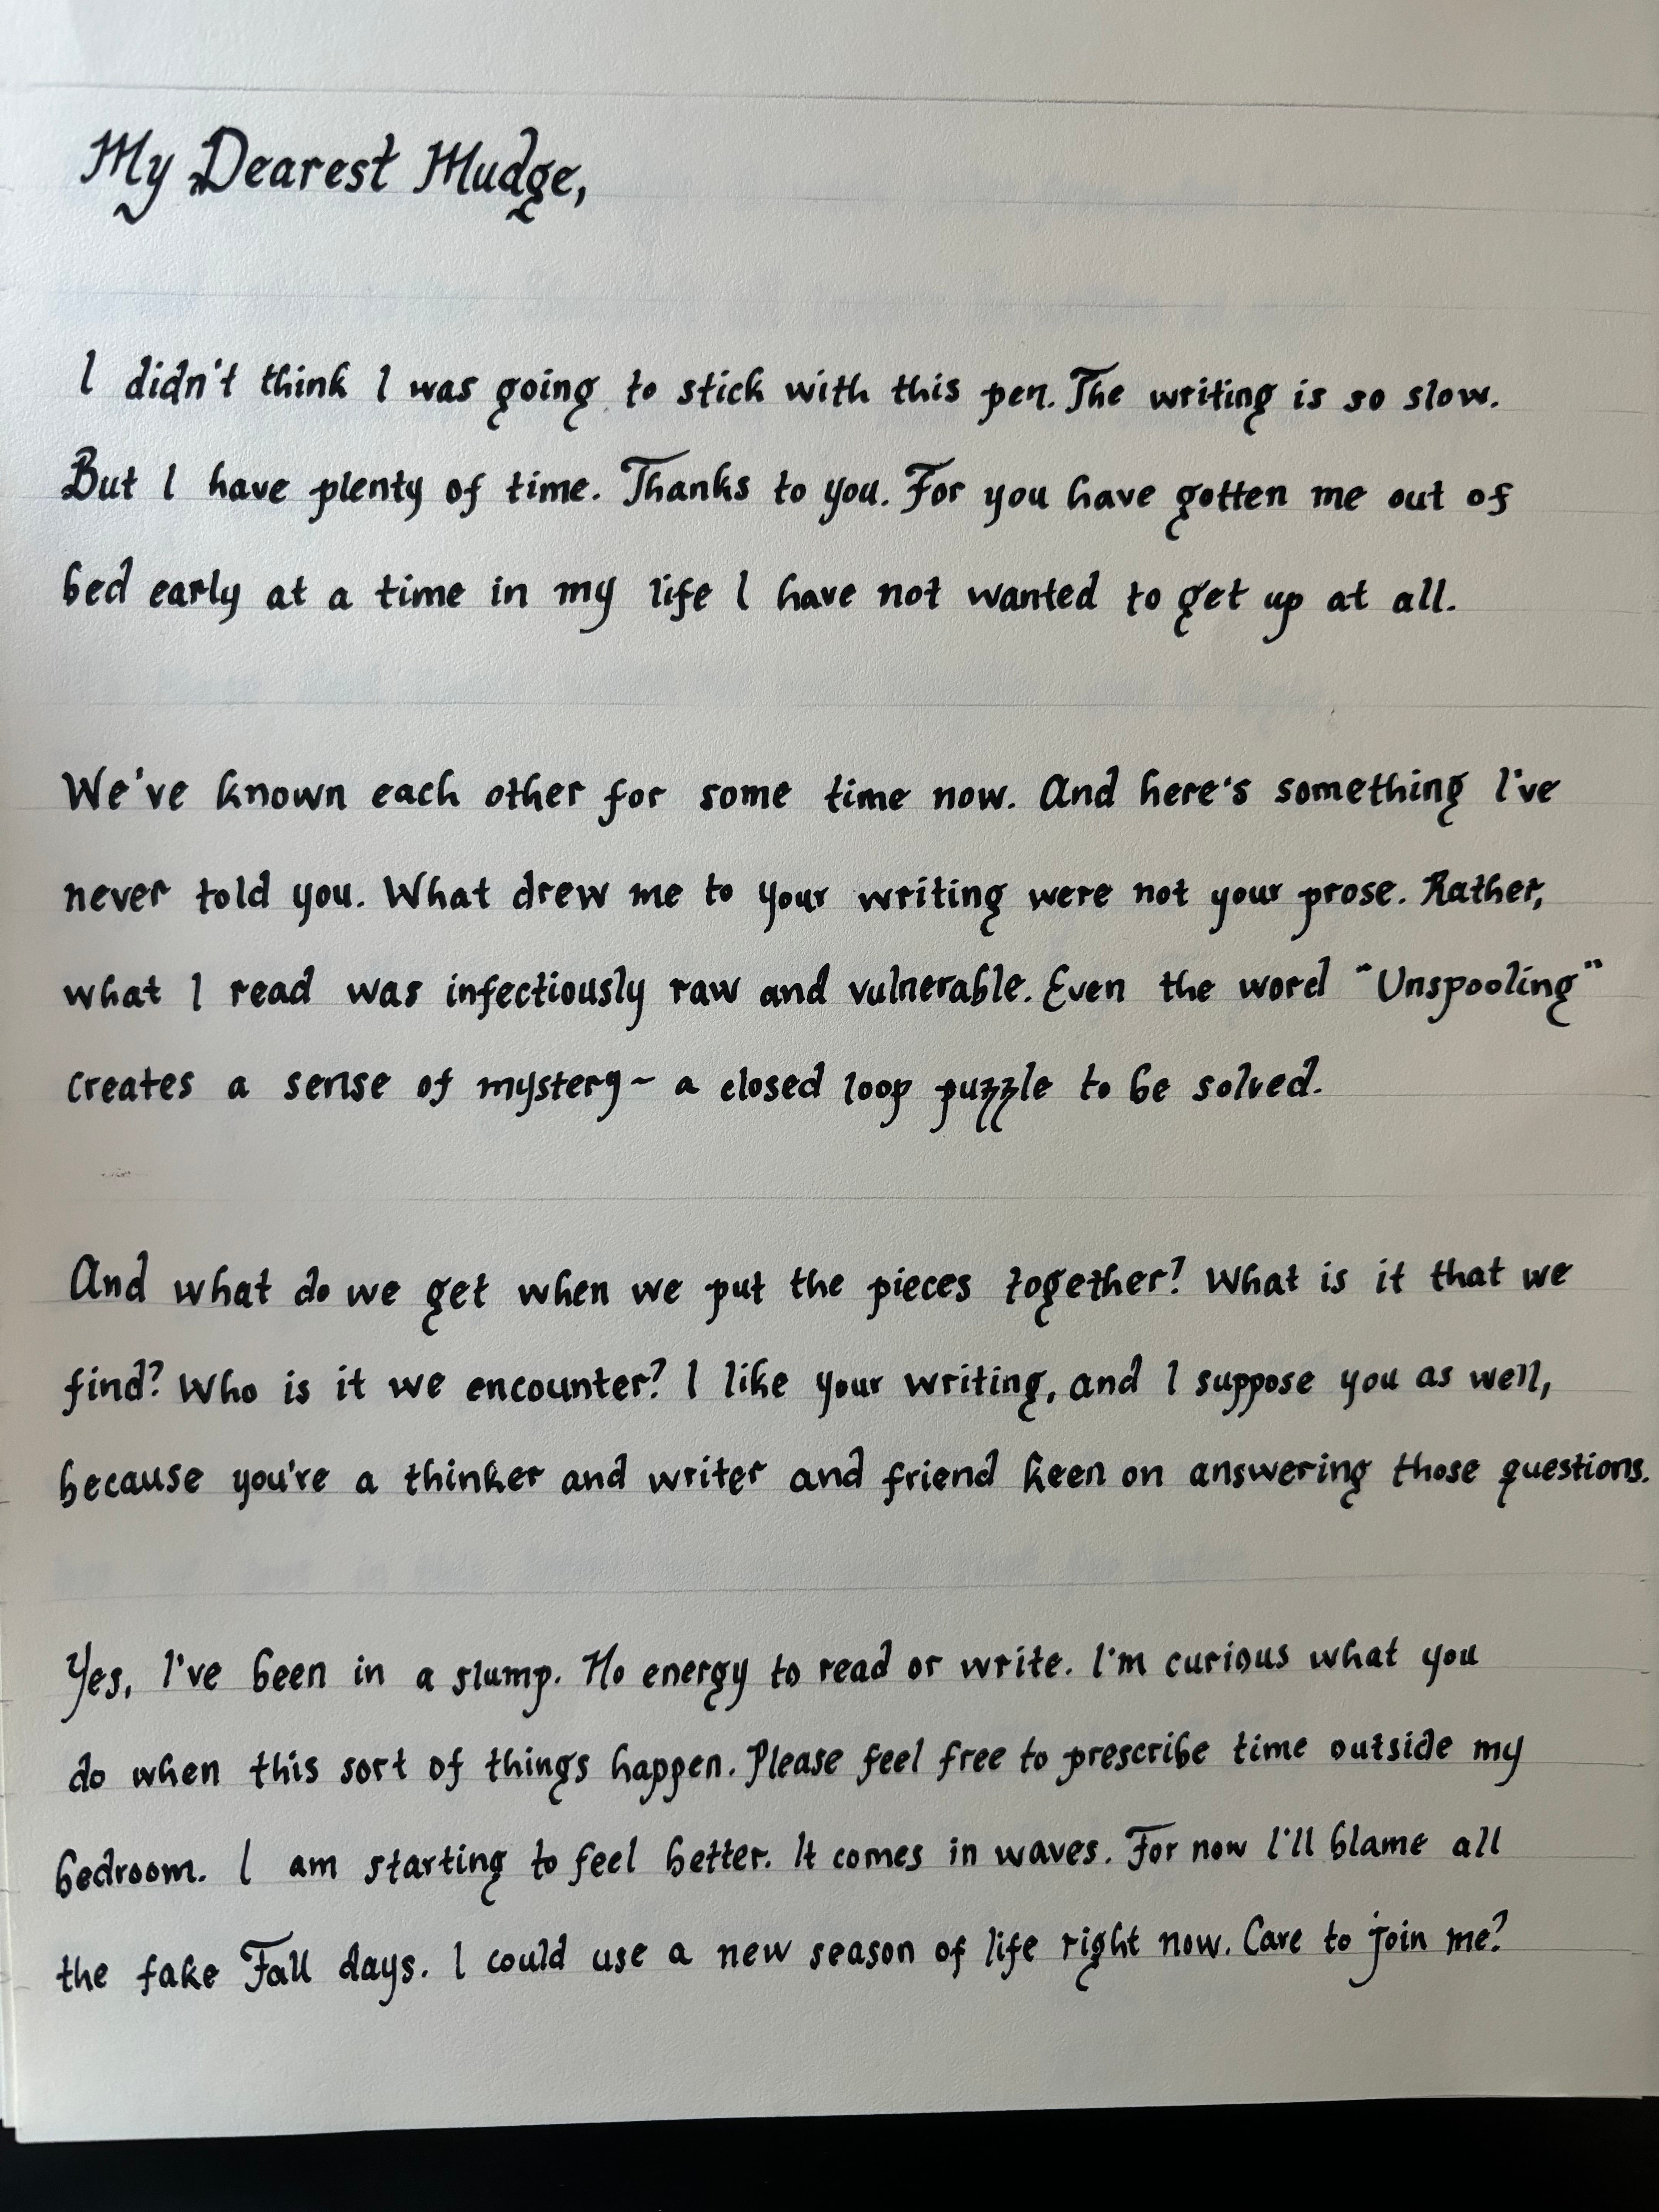 My Dearest Mudge,
I didn't think I was going to stick with this pen. The writing is so slow.
But I have plenty of time. Thanks to you. For you have gotten me out of
bed early at a time in my life I have not wanted to get up at all.
We've known each other for some time now. And here's something I've
never told you. What drew me to your writing were not your prose. Rather,
what I read was infectiously raw and vulnerable. Even the word "Unspooling"
creates a sense of mystery~ a closed loop puzzle to be solved.
And what do we get when we put the pieces together? What is it that we
find? Who is it we encounter? I like your writing, and I suppose you as well,
because you're a thinker and writer and friend keen on answering those questions.
Yes, I've been in a slump. No energy to read or write. I'm curious what you
do when this sort of things happen. Please feel free to prescribe time outside my
bedroom. I am starting to feel better. It comes in waves. For now I'll blame all
the fake Fall days. I could use a new season of life right now. Care to join me?